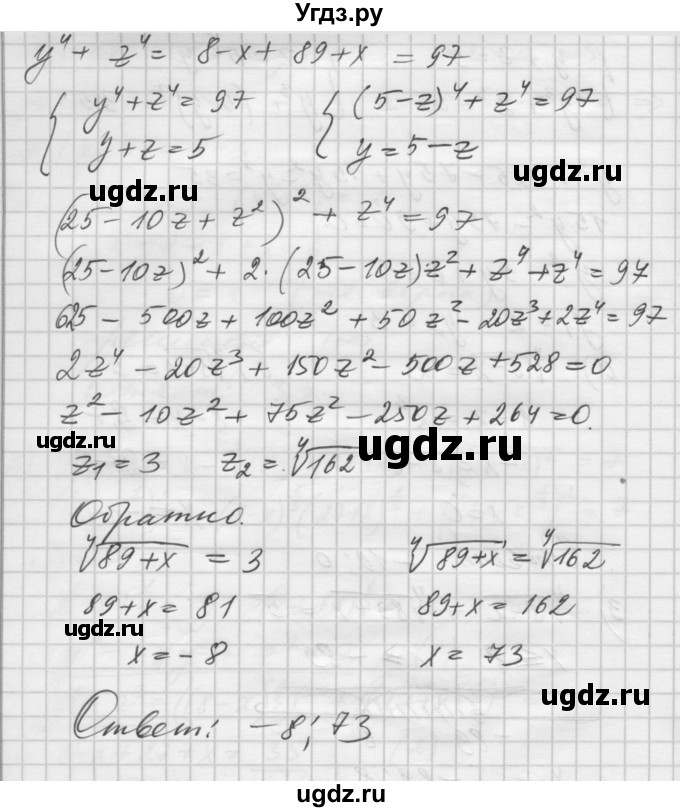 Угдз.ру
y⁴ + z⁴ = 8 - x + 89 + x = 97
{ y⁴ + z⁴ = 97 { (5 - z)⁴ + z⁴ = 97
y + z = 5 y = 5 - z
ugdz.ru
ugdz.ru
(25 - 10z + z²)² + z⁴ = 97
(25 - 10z)² + 2·(25 - 10z)·z² + z⁴ + z⁴ = 97
625 - 500z + 100z² + 50z² - 20z³ + 2z⁴ = 97
2z⁴ - 20z³ + 150z² - 500z + 528 = 0
z² - 10z² + 75z² - 250z + 264 = 0.
ugdz.ru
ugdz.ru
z₁ = 3 z₂ = ⁴√162
Обратно.
⁴√89+x = 3 ⁴√89+x = ⁴√162
89 + x = 81 89 + x = 162
ugdz.ru
x = - 8 x = 73
ugdz.ru
Ответ: -8; 73
ugdz.ru